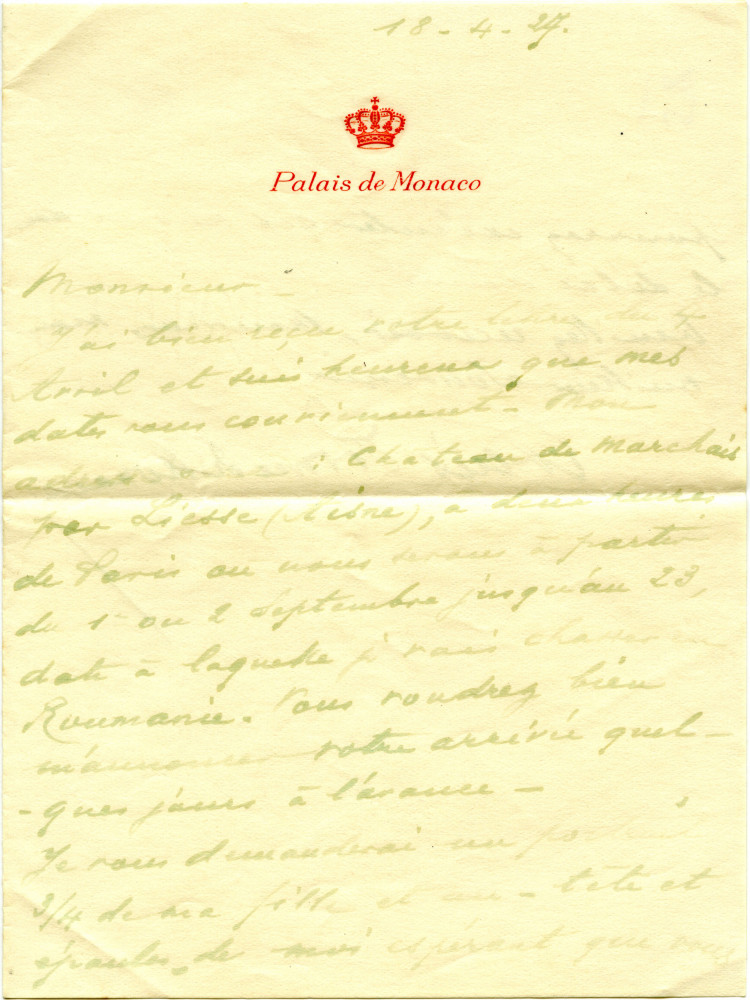 18-4-27.
Palais de Monaco
Monsieur -
J'ai bien reçu votre lettre du 4
Avril et suis heureux que mes
dates vous conviennent - Mon
adresse : Chateau de Marchais
par Liesse (Aisne), à deux heures
de Paris ou nous serons à partir
du 1er ou 2 Septembre jusqu'au 23,
date à laquelle je vais chasser en
Roumanie. Vous voudrez bien
m'annoncer votre arrivée quel-
-ques jours à l'avance -
Je vous demanderai un portrait
3/4 de ma fille et un - tête et
épaules, de moi espérant que vous